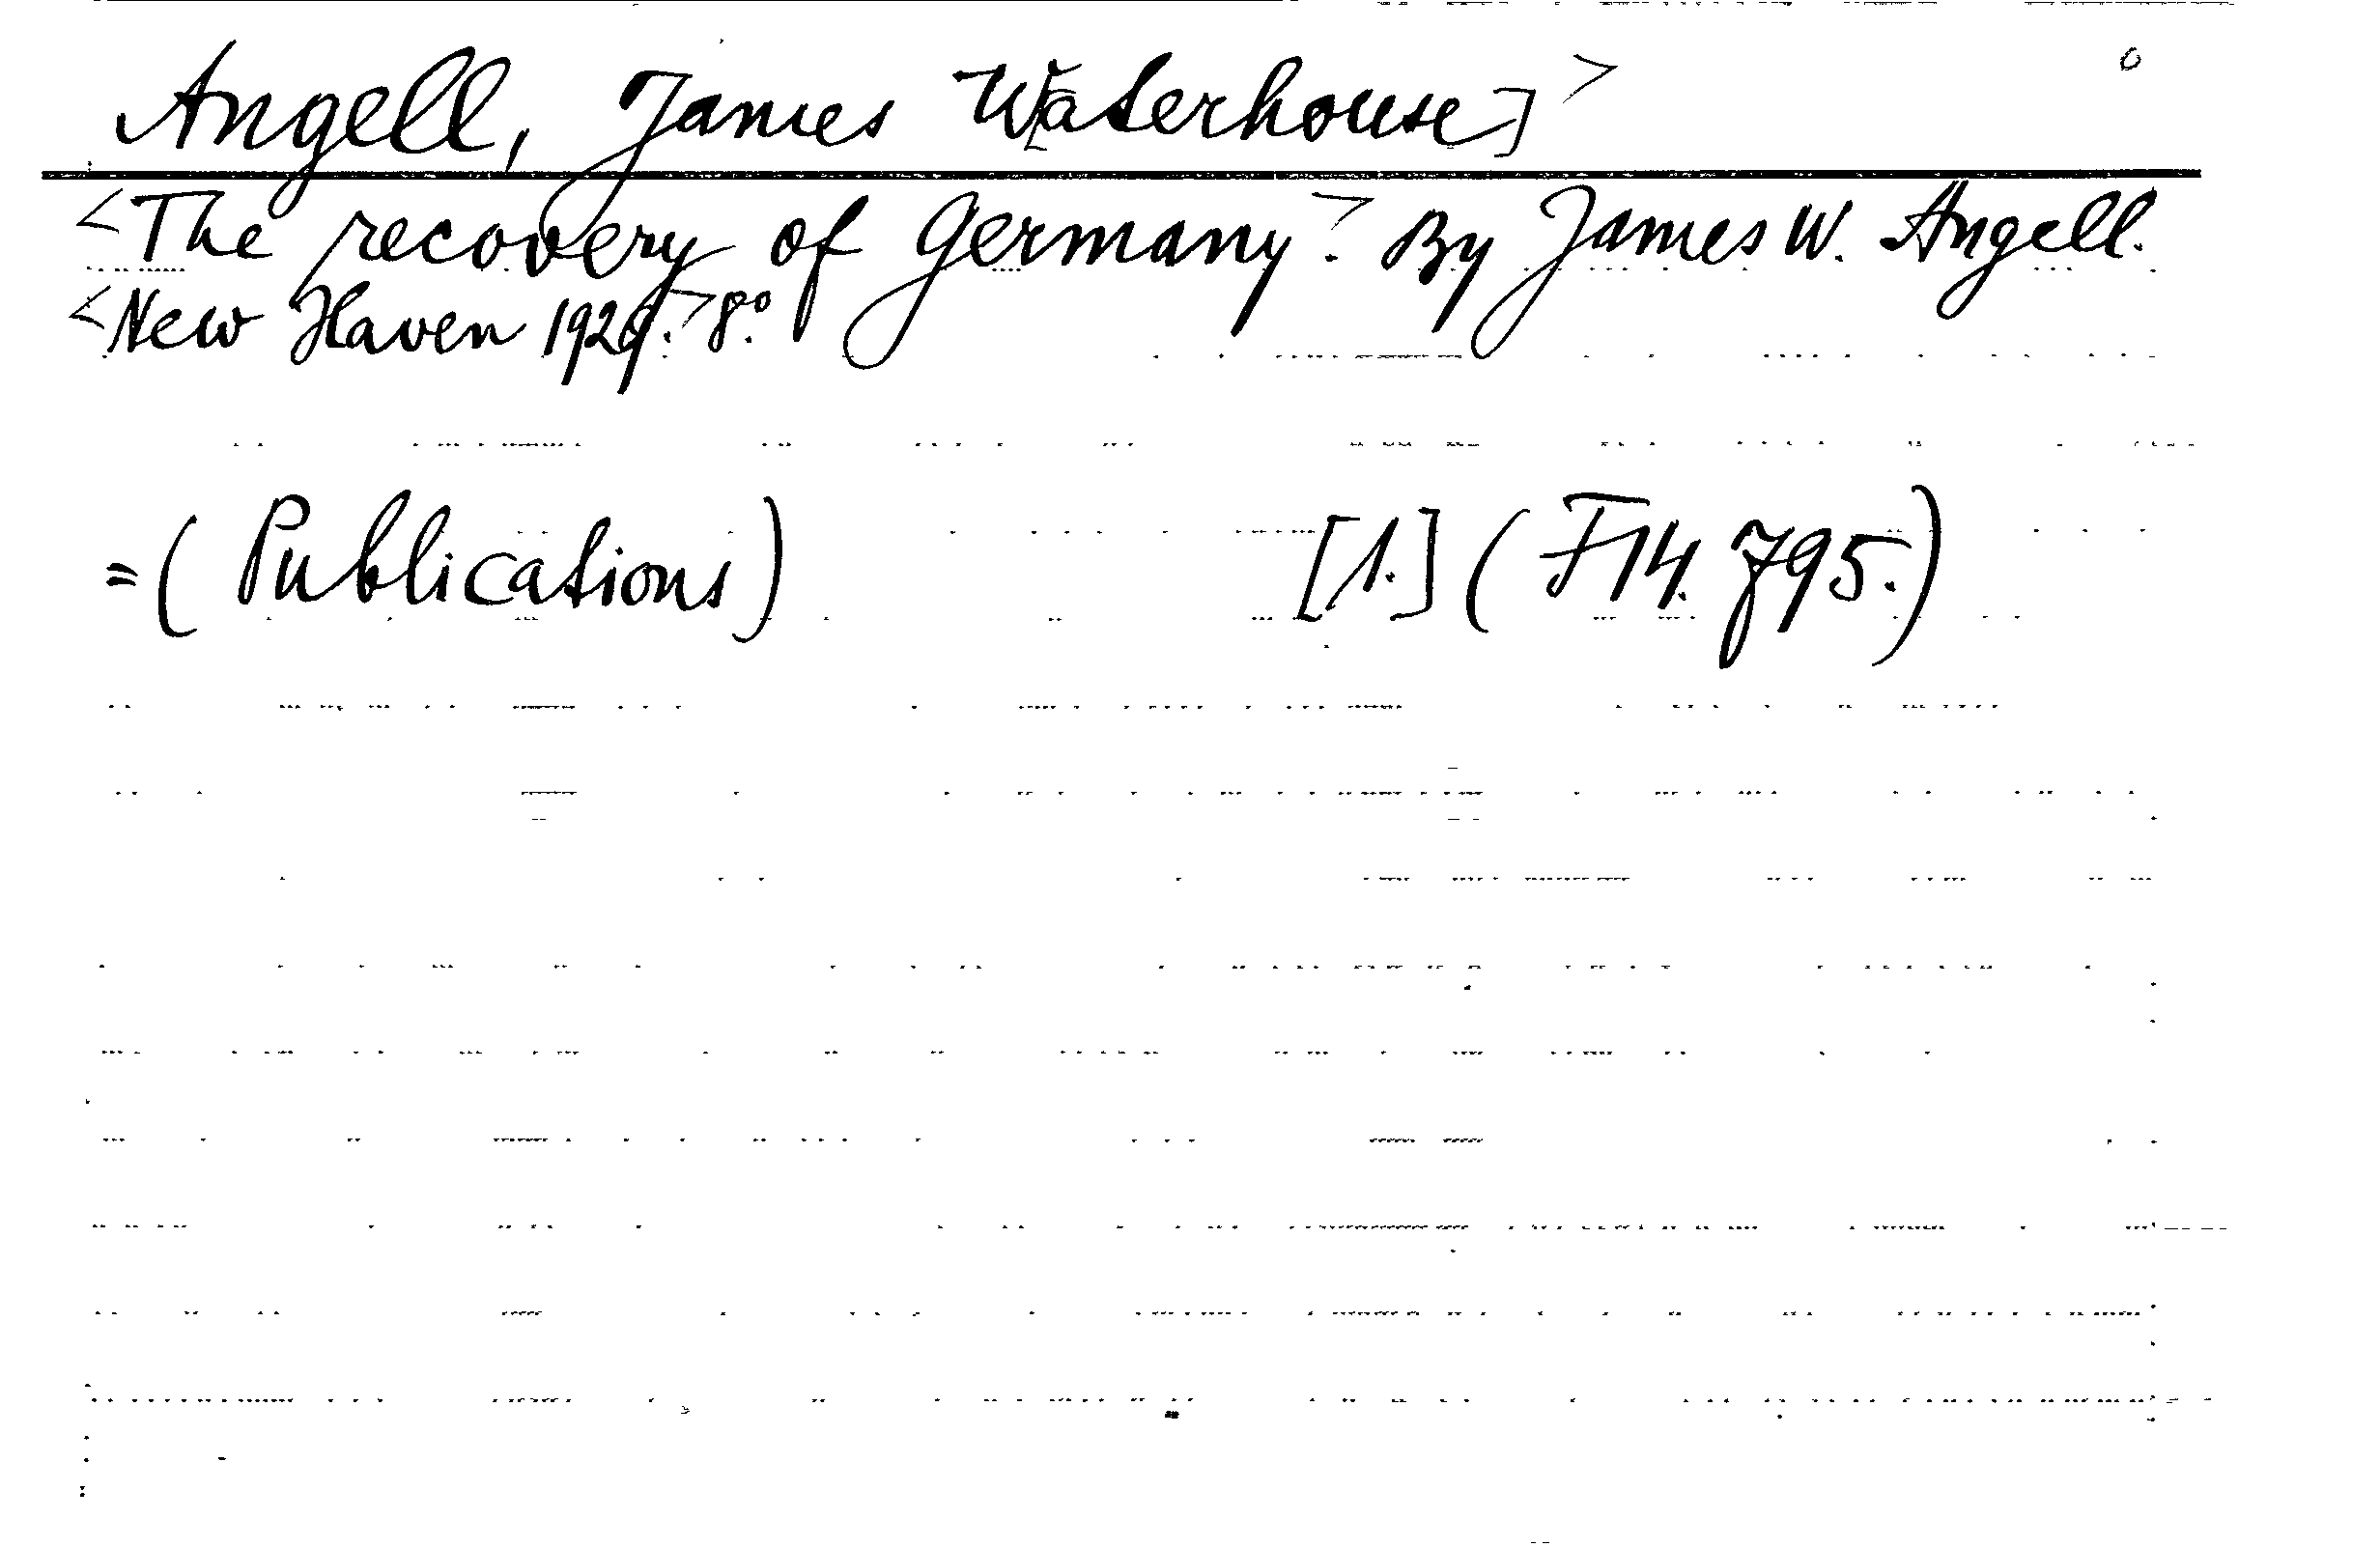 Angell, James W[aterhouse]> o
<The recovery of Germany.> By James W. Angell.
<New Haven 1929.> 8.°
=(Publications) [1.] (F14.795.)